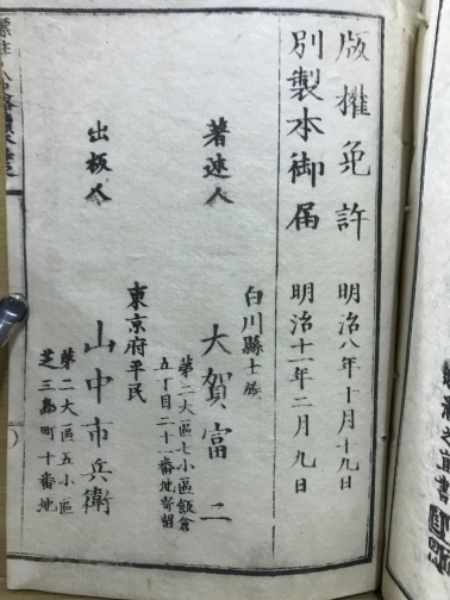 版權免許　明治八年十月十九日
別製本御届　明治十一年二月九日
著述人
白川縣士族
大賀富二
第二大區七小區飯倉
五丁目二十一番地寄留
出板人
東京府平民
山中市兵衛
第二大區五小區
芝三島町十番地